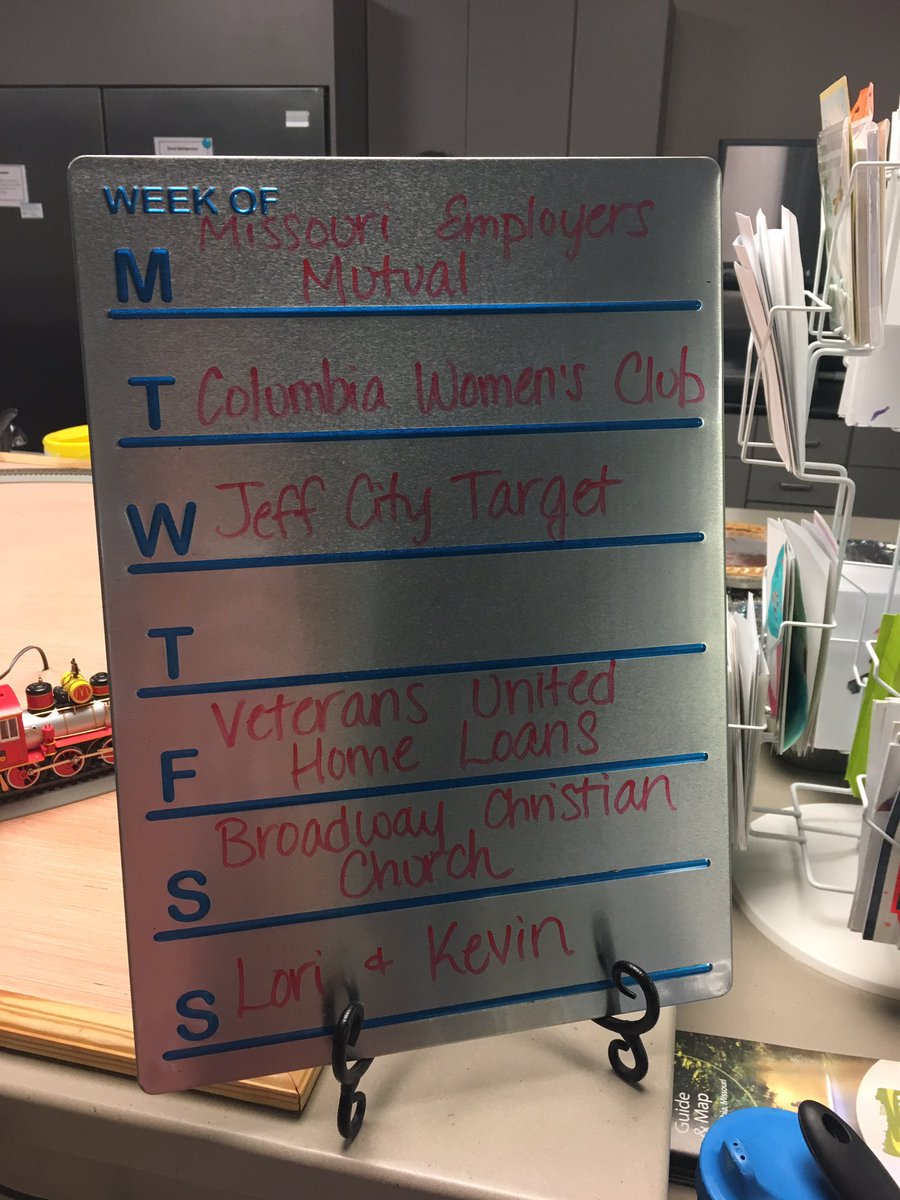 WEEK OF
Missouri Employers
M Mutual
T Columbia Women's Club
W Jeff City Target
T
Veterans United
F Home Loans
Broadway Christian
S Church
S Lori & Kevin
Guide
& Map